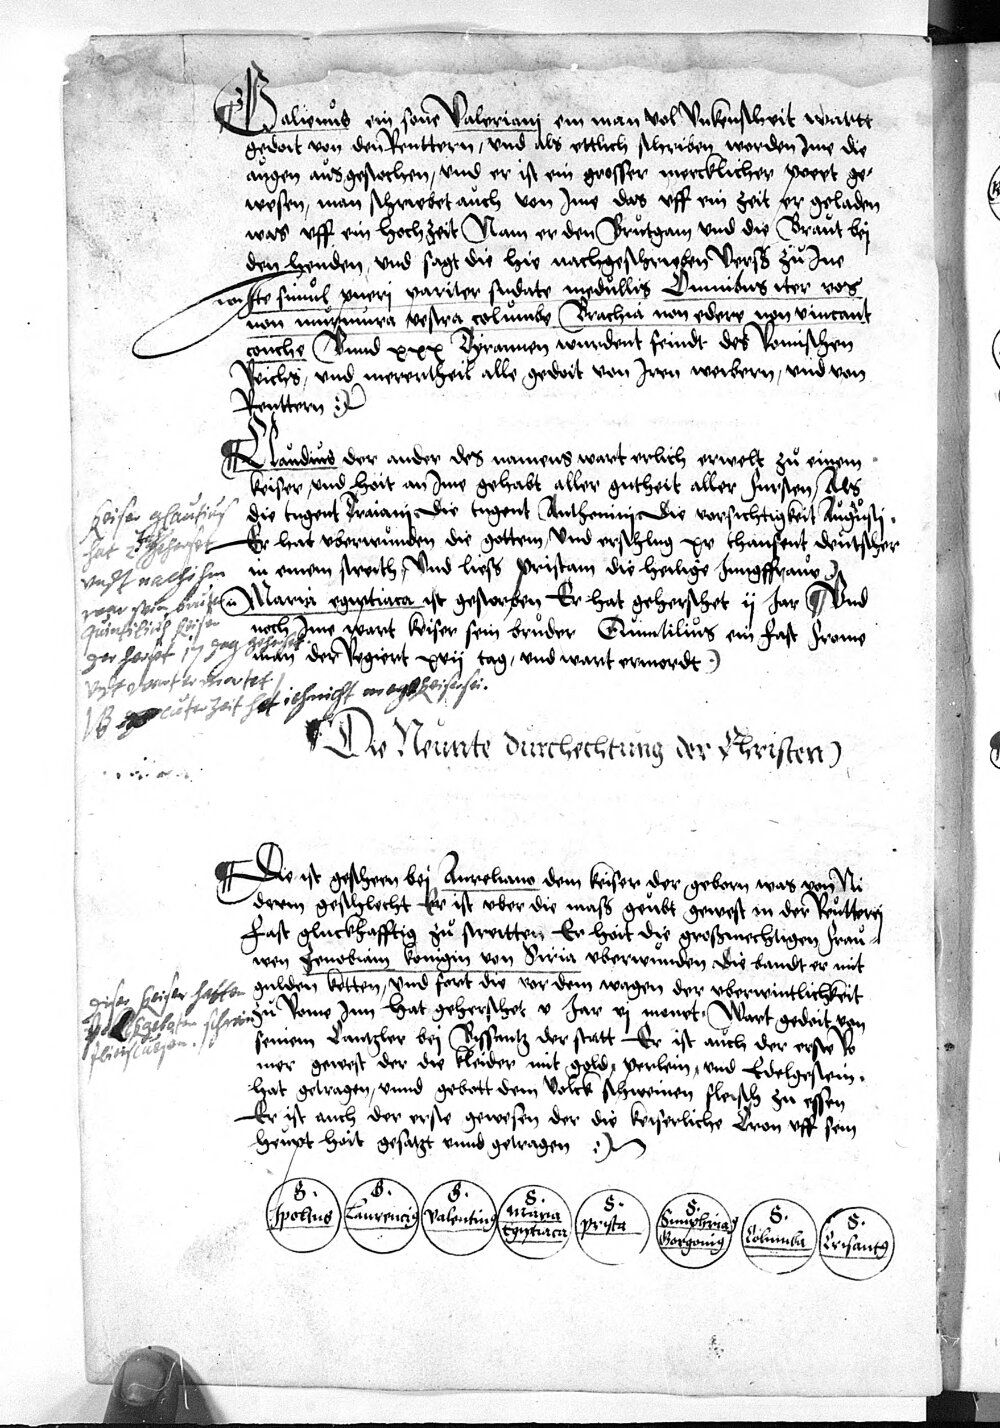 Galienus ein sone Valeriani ein man vol Unkenscheit wartt
gedoit von den Reuttern, und als ettlich schriben worden Ime die
augen aus gestochen, und er ist ein grosser mercklicher poeet ge-
wesen, man schriebet auch von Ime das uff ein zeit er geladen
was uff ein hochzeit Nam er den Brutgam und die Braut bei
den henden, und sagt die hie nachgeschrieben Verß zu Ine
Ite simul pueri pariter sudate medullis Omnibus iter vos
non murmura vestra columbe Brachia non edere non vincant
conche Unnd xxx Tyrannen wurdent feindt des Romischen
Reichs, und merertheil alle gedoit von Iren weibern, und von
Reuttern
Claudius der ander des namens wart erlich erwelt zu einem
keiser, und hoit an Ime gehabt aller gutheit aller fursten, Als
die tugent Traiani Die tugent Anthonini Die vorsichtigkeit Augusti.
Er hat uberwunden die gottem, Und erschlug xv thausent deutscher
in einem streith, Und ließ pristam die heilige Jungffrauwe
Maria egiptiaca ist gestorben Er hat geherschet ij Jar Und
noch Ime wart keiser sein bruder Quintilius ein fast frome
man der Regiert xvij tag, und wart ermordt
keiser Claudius
hat 2 Jar geherst
undt nach ihm
war sein bruder
Quintilius keiser
der herst 17 dag geherst
undt wart ermortet
zeit hat ich nicht
Die Neunte durchechtung der Christen
Die ist gescheen bei Aureliano dem keiser der geborn was von Ni
derm geschlecht Er ist uber die maß geubt gewest in der Reutterij
fast gluckhafftig zu streitten Er hoit die großmechtigen frau-
wen Zenobiam konigin von Siria uberwunden Die bandt er mit
gulden ketten, und fort die vor dem wagen der uberwintlichkeit
zu Rome Inn hat geherschet v Jar vj monet. Wart gedoit von
seinem Cantzler bei Bissantz der statt Er ist auch der erste Ro
mer gewest der die kleider mit gold, perlein, und Edelgestein.
hat getragen, unnd gebott dem Volck schweinen fleisch zu essen
Er ist auch der erste gewesen der die keiserliche Cron uff sein
heupt hoit gesatzt unnd getragen
diser keiser hatt
S. Ipolitus
S. Laurencius
S. Valentinus
S. Maria Egiptiaca
S. Prista
S. Simphorianus Gorgonius
S. Columba
S. Crisantus